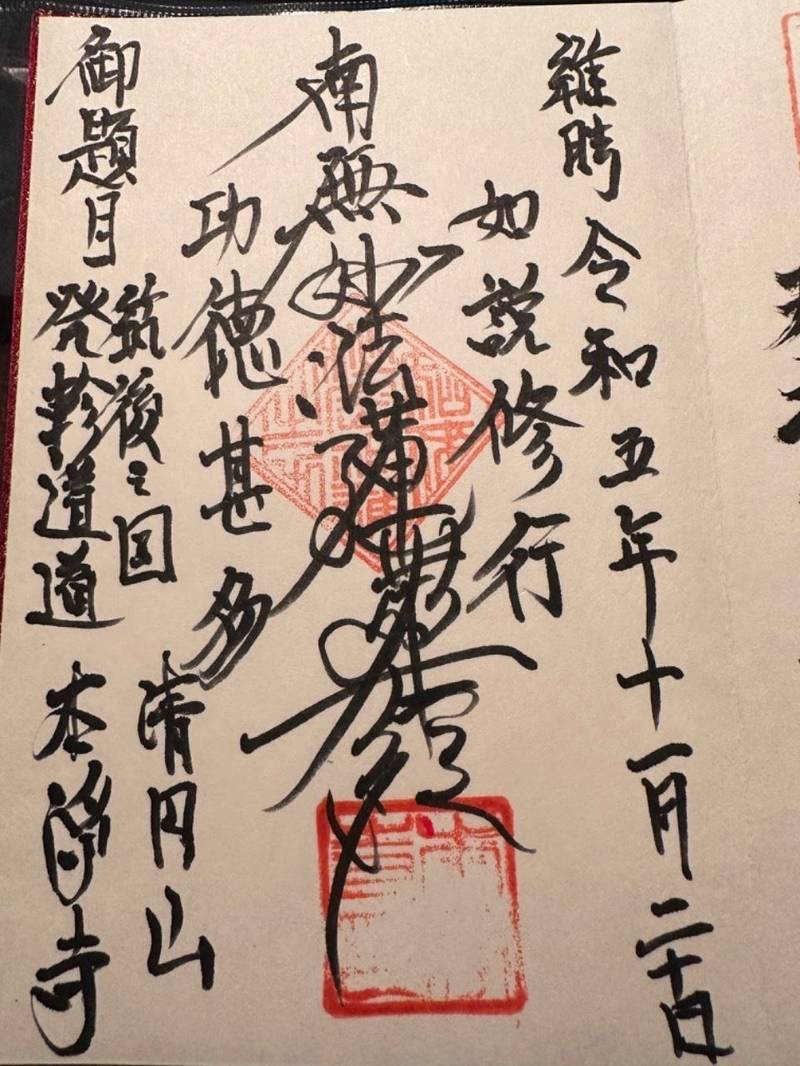 維時 令和五年十一月二十日
如説修行
南無妙法蓮華経
功徳甚多
筑後之国 清円山
御題目 発軫道道 本浄寺